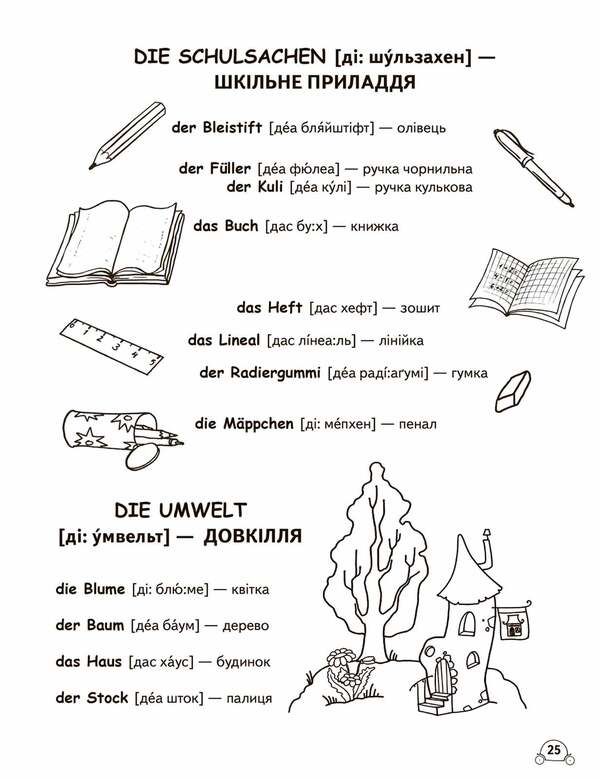 DIE SCHULSACHEN [ді: шу́льзахен] —
ШКІЛЬНЕ ПРИЛАДДЯ
der Bleistift [де́а бля́йштіфт] — олівець
der Füller [де́а фю́леа] — ручка чорнильна
der Kuli [де́а ку́лі] — ручка кулькова
das Buch [дас бу:х] — книжка
das Heft [дас хефт] — зошит
das Lineal [дас ліне́а:ль] — лінійка
der Radiergummi [де́а раді́:аґумі] — гумка
0 1 2 3 4 5
die Mäppchen [ді: ме́пхен] — пенал
DIE UMWELT
[ді: у́мвельт] — ДОВКІЛЛЯ
die Blume [ді: блю́:ме] — квітка
der Baum [де́а ба́ум] — дерево
das Haus [дас ха́ус] — будинок
der Stock [де́а шток] — палиця
25